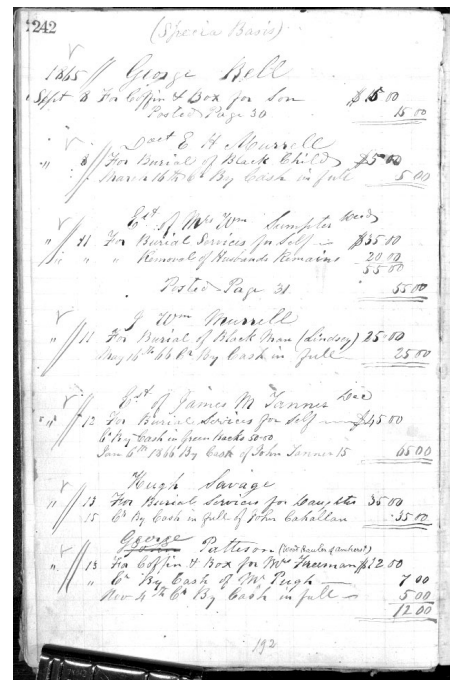 242
(Specia Basis)
1865 George Bell
Sept 8 For Coffin & Box for Son $15 00
Posted Page 30 15.00
Doct E H Murrell
" 8 For Burial of Black Child $5 00
Cr By Cash in full 5.00
Est of Mrs Wm Sumpter Decd
" 11 For Burial Services for Self $35.00
" " " Removal of Husbands Remains 20 00
55 00
Posted Page 31 55 00
J Wm Murrell
" 11 For Burial of Black Man (Lindsey) 25.00
May 16th 66 Cr By Cash in full 25 00
Est of James M Tanner Dec
" 12 For Burial Services for Self
Cr By Cash in Green Backs 50.00
Jan 6th 1866 By Cash of John Tanner 15 65 00
Hugh Savage
" 13 For Burial Services for Daughter 35 00
15 Cr By Cash in full of John Callahan 35.00
George Pattison
" 13 For Coffin & Box for Mrs Freeman $12.00
" Cr By Cash of Mr Pugh 7 00
Nov 4th Cr By Cash in full 5 00
12 00
192